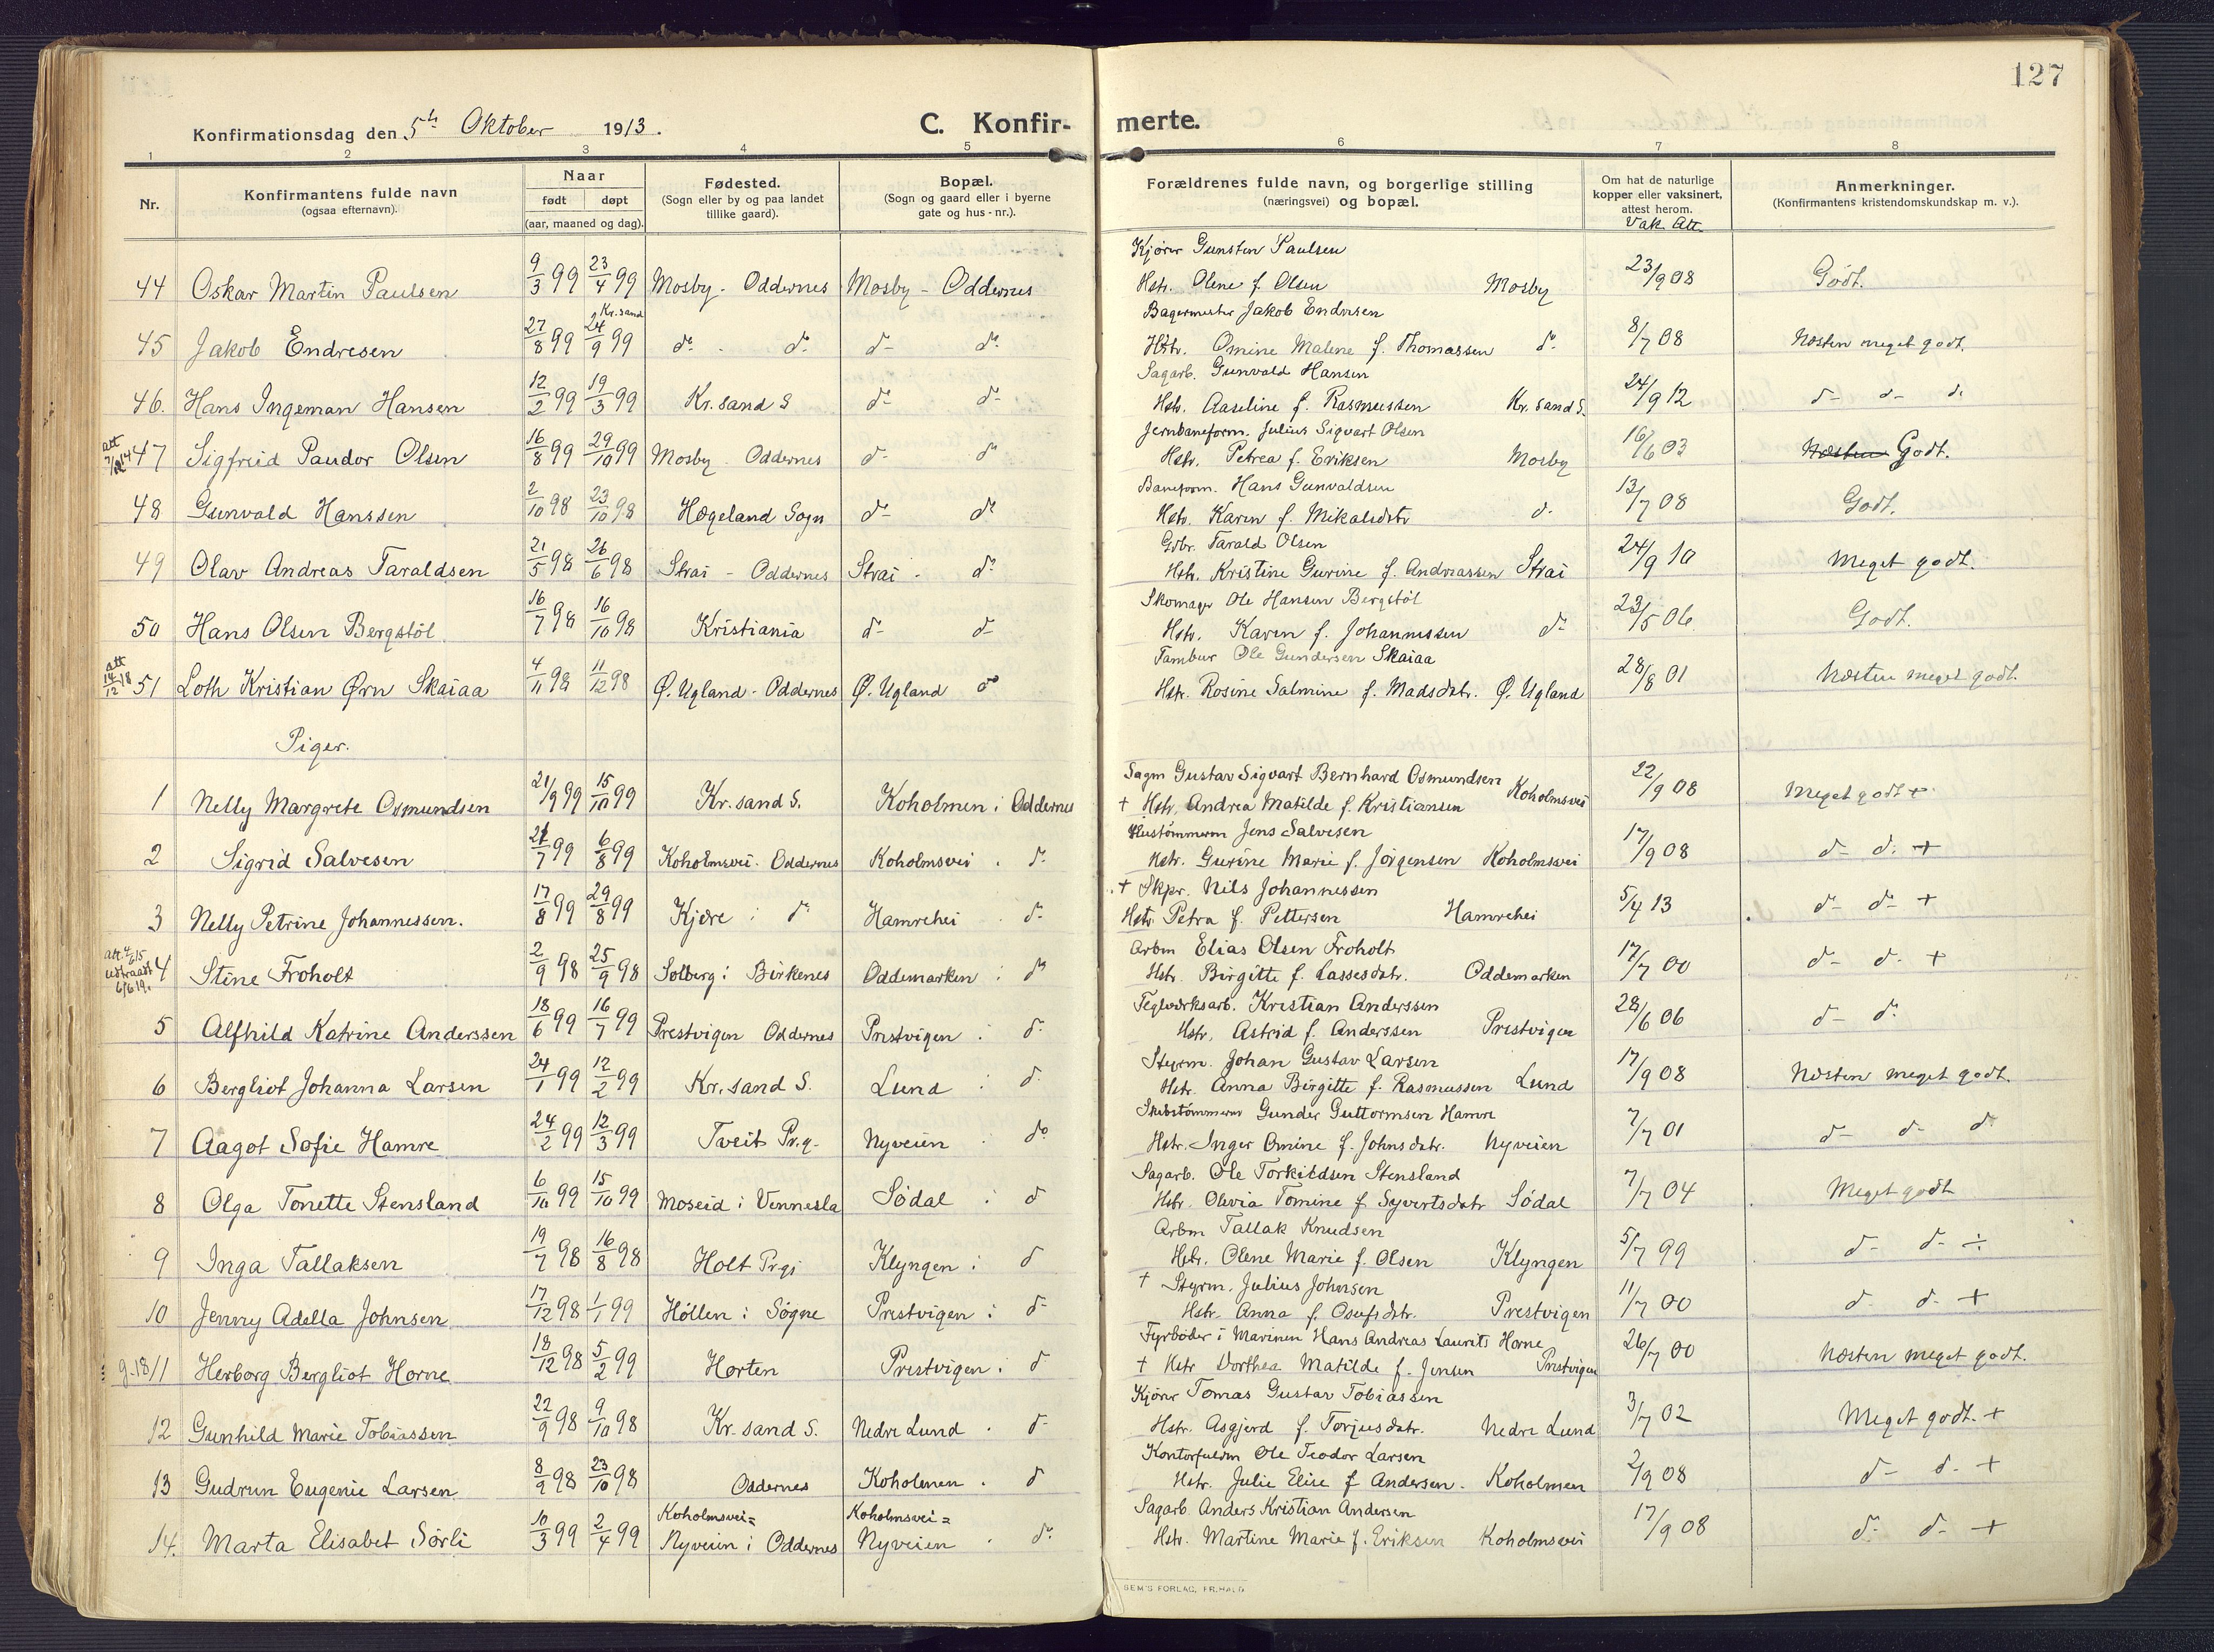 127
Konfirmationsdag den 5te Oktober 1913.
C. Konfir-
merte.
1 2 3 4 5 6 7 8
Nr.
Konfirmantens fulde navn
(ogsaa efternavn).
Naar
født døpt
(aar, maaned og dag).
Fødested.
(Sogn eller by og paa landet
tillike gaard).
Bopæl.
(Sogn og gaard eller i byerne
gate og hus-nr.).
Forældrenes fulde navn, og borgerlige stilling
(næringsvei) og bopæl.
Om hat de naturlige
kopper eller vaksinert,
attest herom.
Vak. Att.
Anmerkninger.
(Konfirmantens kristendomskundskap m. v.).
Kjører Gunsten Paulsen
44 Oskar Martin Paulsen 9/3 99 23/4 99 Mosby - Oddernes Mosby - Oddernes Hstr. Olene f. Olsen Mosby 23/9 08 Godt.
Kr.sand
Bagermester Jakob Endresen
45 Jakob Endresen 27/8 99 24/9 99 do - do do do Hstr. Omine Malene f. Thomassen do 8/7 08 Næsten meget godt.
Sagarb. Gunvald Hansen
46. Hans Ingeman Hansen 12/2 99 19/3 99 Kr.sand S do do Hstr. Aaseline f. Rasmussen Kr.sand S. 24/9 12 do do do
Jernbaneform. Julius Sigvart Olsen
att 47 Sigfreid Pauder Olsen 16/8 99 29/10 99 Mosby - Oddernes do do Hstr. Petrea f. Eriksen Mosby 16/6 03 Næsten Godt.
Baneform. Hans Gunvaldsen
48 Gunvald Hanssen 2/10 98 23/10 98 Hægeland Sogn do do Hstr. Karen f. Mikalsdtr do 13/7 08 Godt.
Gdbr. Tarald Olsen
49 Olav Andreas Taraldsen 21/5 98 26/6 98 Strai - Oddernes Strai - do Hstr. Kristine Gurine f. Andreassen Strai 24/9 10 Meget godt.
Skomager Ole Hansen Bergstöl
50 Hans Olsen Bergstöl 16/7 98 16/10 98 Kristiania do do Hstr. Karen f. Johannessen do 23/5 06 Godt.
Tambur Ole Gundersen Skaiaa
att 14/12 18 51 Loth Kristian Ørn Skaiaa 4/11 98 11/12 98 Ø. Ugland - Oddernes Ø. Ugland do Hstr. Rosine Salmine f. Madsdatr. Ø. Ugland 28/8 01 Næsten meget godt.
Piger.
Sagm Gustav Sigvart Bernhard Osmundsen
1 Nelly Margrete Osmundsen 21/9 99 15/10 99 Kr.sand S. Koholmen i Oddernes + Hstr. Andrea Matilde f. Kristiansen Koholmsvei 22/9 08 Meget godt +
Hustömmerm Jens Salvesen
2 Sigrid Salvesen 21/7 99 6/8 99 Koholmsvei - Oddernes Koholmsvei - do Hstr. Gurine Marie f. Jörgensen Koholmsvei 17/9 08 do do +
+ Skpr. Nils Johannessen
3 Nelly Petrine Johannessen. 17/8 99 29/8 99 Kjære i do Hamrehei - do Hstr. Petra f. Pettersen Hamrehei 5/4 13 do do +
Arbm Elias Olsen Froholt
4 Stine Froholt 2/9 98 25/9 98 Solberg i Birkenes Oddemarken i do Hstr. Birgitte f. Lassesdatr. Oddemarken 17/7 00 do do +
Teglværksarb. Kristian Anderssen
5 Alfhild Katrine Anderssen 18/6 99 16/7 99 Prestvigen Oddernes Prestvigen i do Hstr. Astrid f. Anderssen Prestvigen 28/6 06 do do
Styrm. Johan Gustav Larsen
6 Bergliot Johanna Larsen 24/1 99 12/2 99 Kr.sand S. Lund i do Hstr. Anna Birgitte f. Rasmussen Lund 17/9 08 Næsten meget godt.
Skibstömmerm Gunder Guttormsen Hamre
7 Aagot Sofie Hamre 24/2 99 12/3 99 Tveit Pr.g. Nyveien i do Hstr. Inger Omine f. Johnsdatr. Nyveien 7/7 01 do do do
Sagarb. Ole Torkildsen Stensland
8 Olga Tonette Stensland 6/10 99 15/10 99 Moseid i Vennesla Södal i do Hstr. Olivia Tomine f. Syvertsdatr Södal 7/7 04 Meget godt
Arbm Tallak Knudsen
9 Inga Tallaksen 19/7 98 16/8 98 Holt Prgj Klyngen i do Hstr. Olene Marie f. Olsen Klyngen 5/7 99 do do ÷
+ Styrm. Julius Johnsen
10 Jenny Adella Johnsen 17/12 98 1/1 99 Höllen i Søgne Prestvigen i do Hstr. Anna f. Osufsdtr. Prestvigen 11/7 00 do do +
Fyrbøder i Marinen Hans Andreas Laurits Horne
11 Herborg Bergliot Horne 18/12 98 5/2 99 Horten Prestvigen i do + Hstr Dorthea Matilde f. Jensen Prestvigen 26/7 00 Næsten meget godt.
Kjører Tomas Gustav Tobiassen
12 Gunhild Marie Tobiassen 22/9 98 9/10 98 Kr.sand S. Nedre Lund - do Hstr. Asgjerd f. Torjusdatr. Nedre Lund 3/7 02 Meget godt. +
Kontorfuldm Ole Teodor Larsen
13 Gudrun Eugenie Larsen 8/9 98 23/10 98 Oddernes Koholmen - do Hstr. Julie Elise f. Andersen. Koholmen 2/9 08 do do +
Koholmsvei= Koholmsvei= Sagarb. Anders Kristian Andersen
14. Marta Elisabet Sörli 10/3 99 2/4 99 Nyveien i Oddernes Nyveien - do Hstr. Martine Marie f. Eriksen Koholmsvei 17/9 08 do do +
SEM'S FORLAG, FR.HALD